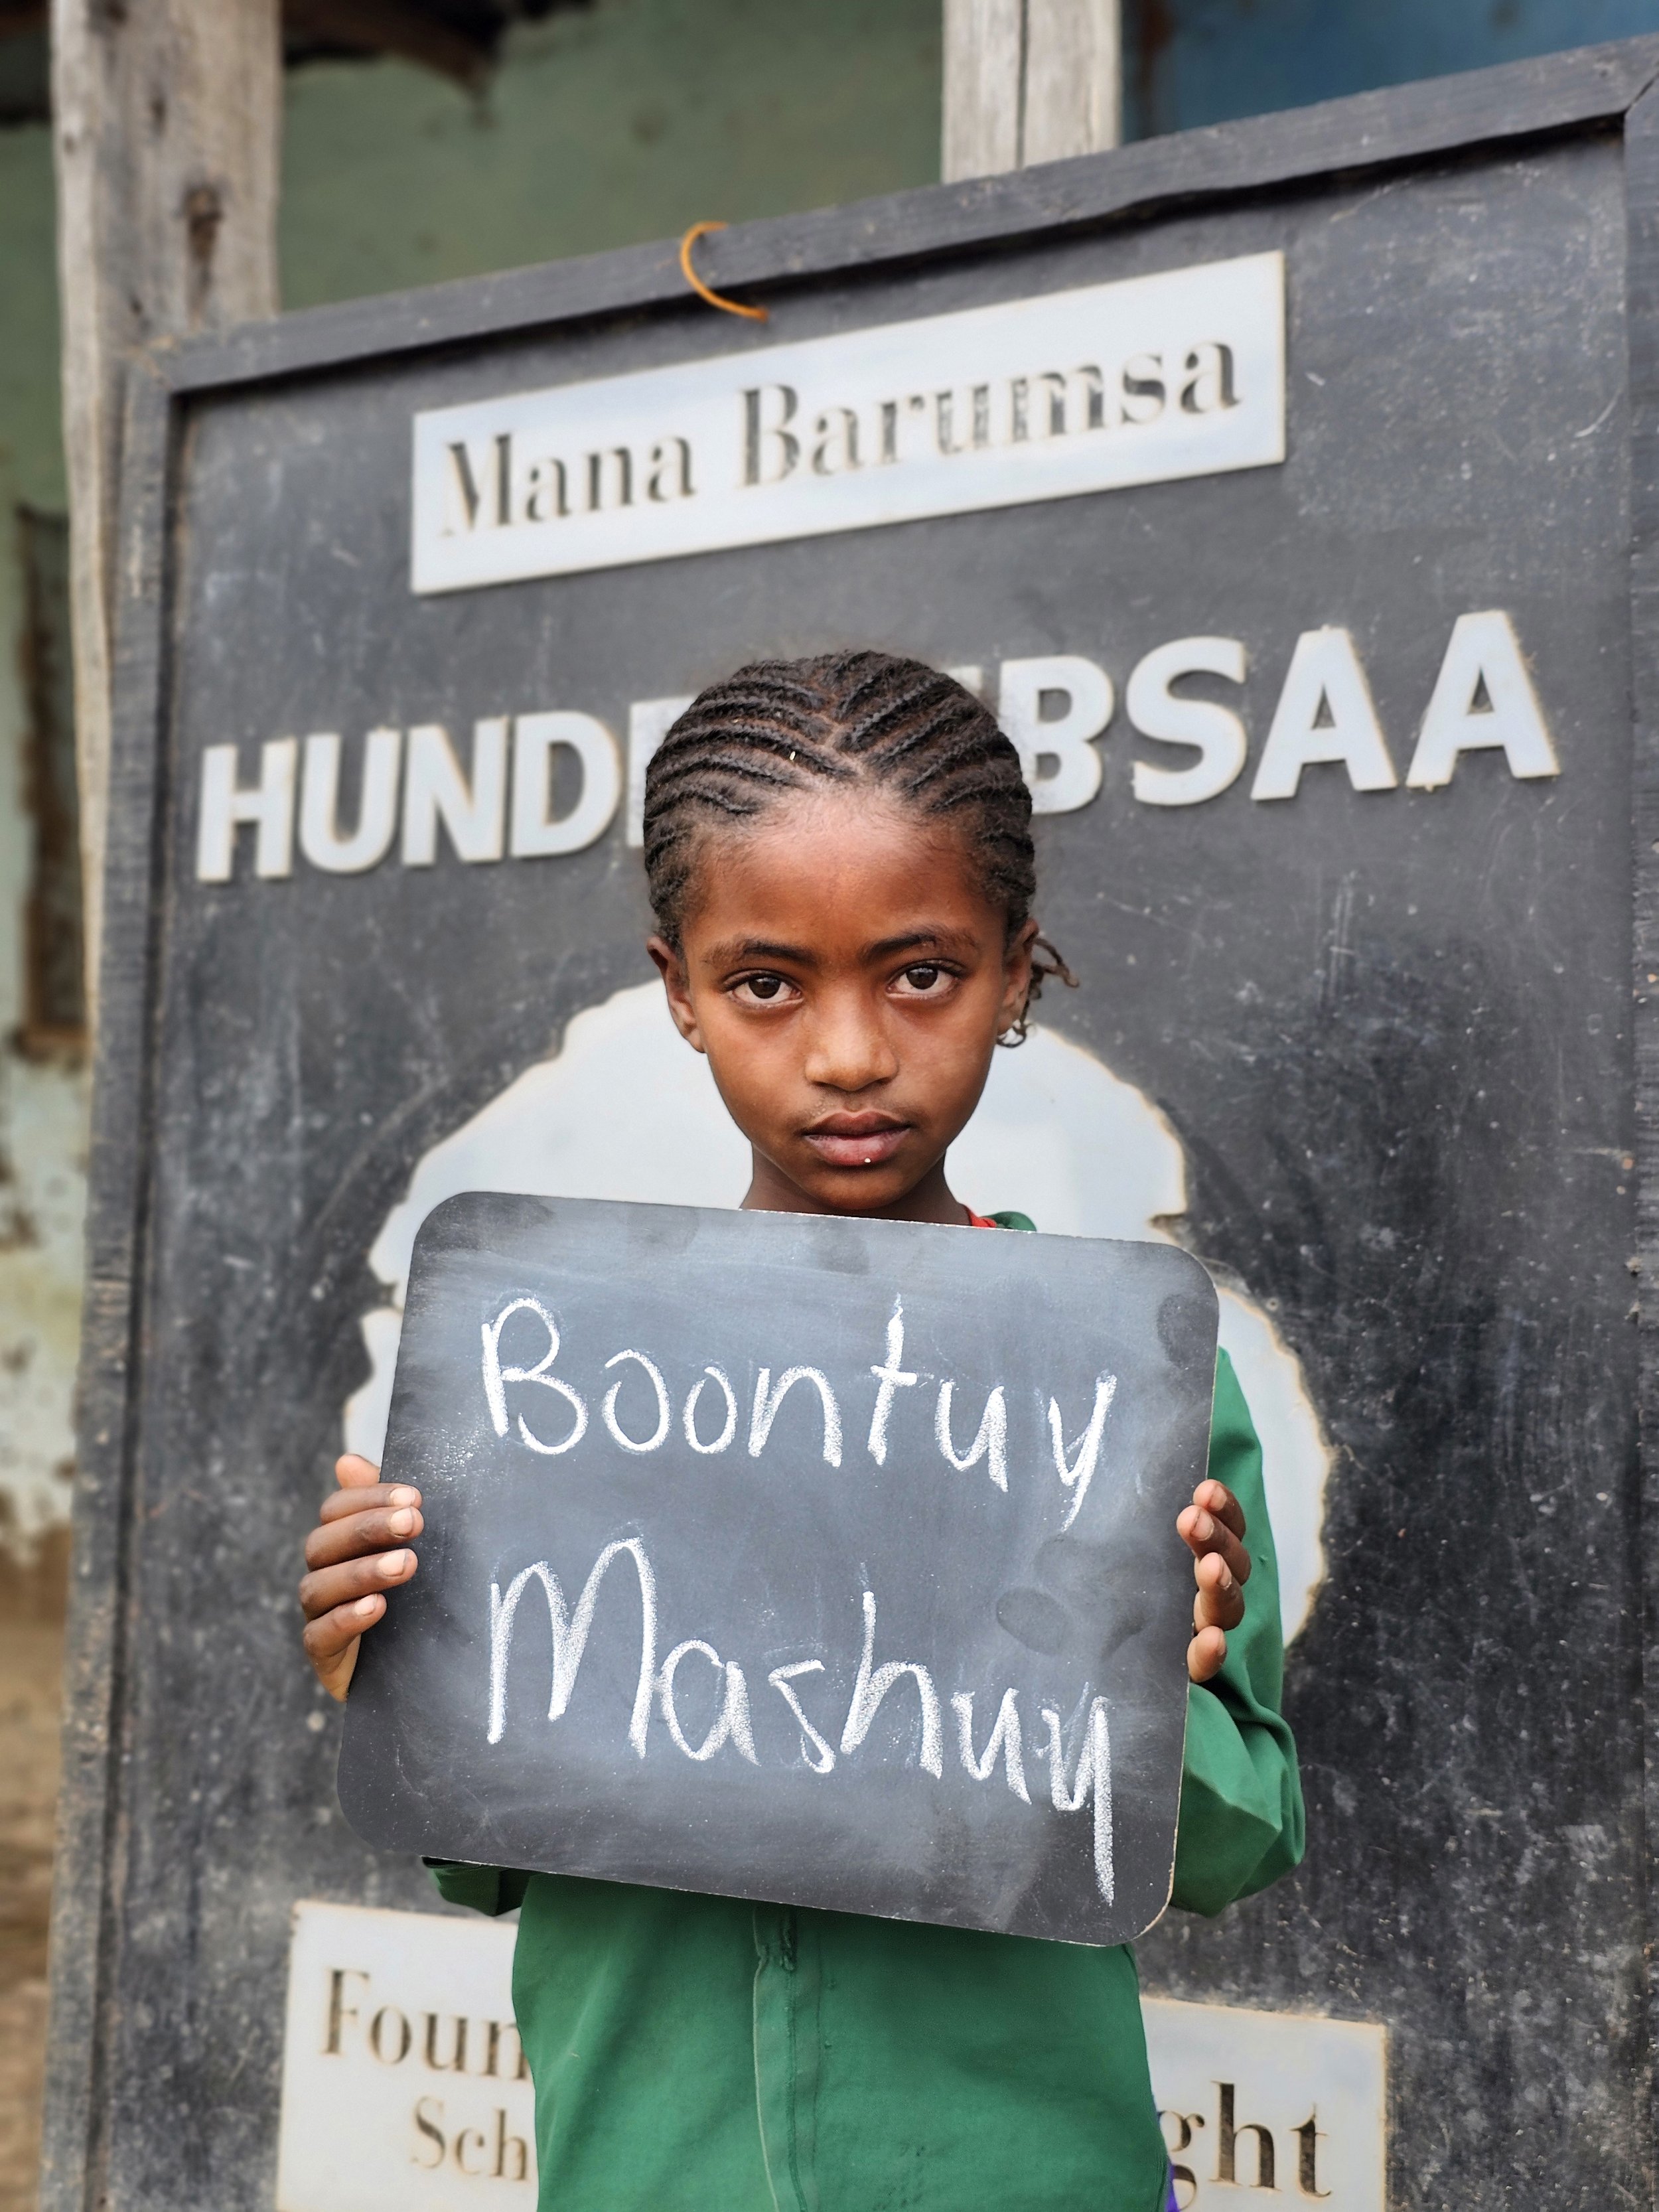 Mana Barumsa
HUND BSAA
Boontuy
Mashuy
Foun
Sch ght